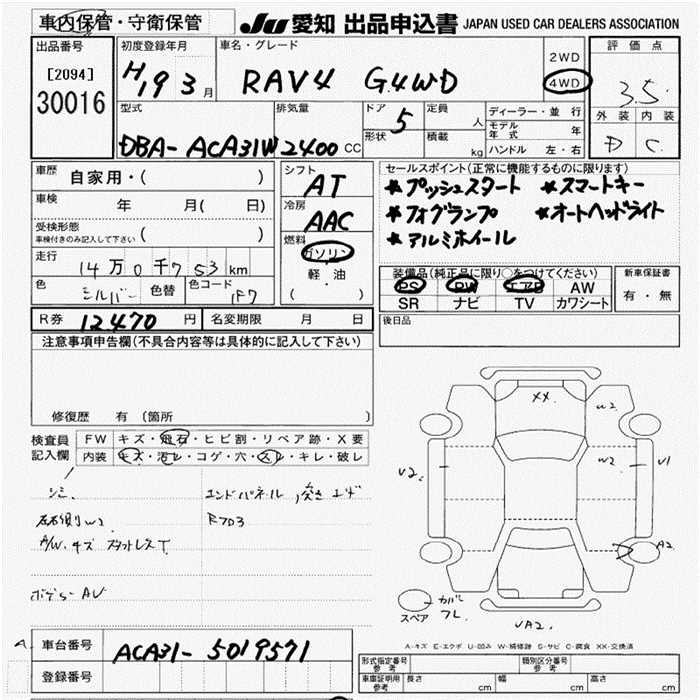 車内保管・守衛保管
JU 愛知 出品申込書 JAPAN USED CAR DEALERS ASSOCIATION
出品番号
[2094]
30016
初度登録年月
H19 3月
車名・グレード
RAV4 G.4WD
2WD
4WD
評価点
3.5
外装 内装
D C
型式
DBA-ACA31W
排気量
2400 CC
ドア
5
形状
定員
人
積載
kg
ディーラー・並行
モデル年式 年
ハンドル 左・右
車歴
自家用・( )
車検
年 月( 日)
受検形態
車検付きのみ記入して下さい ( )
走行
14万0千753km
色
シルバー
色替
色コード
1F7
シフト
AT
冷房
AAC
燃料
ガソリン
軽・油
( )
セールスポイント(正常に機能するものに限ります)
★プッシュスタート ★スマートキー
★フォグランプ ★オートヘッドライト
★アルミホイール
装備品(純正品に限り○をつけてください)
PS PW エアB AW
SR ナビ TV カワシート
新車保証書
有・無
R券 12,470 円 名変期限 月 日
後日品
注意事項申告欄(不具合内容等は具体的に記入して下さい)
修復歴 有(箇所 )
検査員記入欄
FW キズ・飛石・ヒビ割・リペア跡・X要
内装 キズ・汚レ・コゲ・穴・スレ・キレ・破レ
シミ
エンドパネル
左右側W2
A/W.キズ スタットレスT
XX
W2
V2
W2
V1
A2
VA2
スペア
カバー
フレ
A-キズ E-エクボ U-凹み W-補修跡 S-サビ C-腐食 XX-交換済
A
車台番号
ACA31-5019571
登録番号
形式指定番号
参考
類別区分番号
参考
車庫証明用
参考
長さ cm 幅 cm 高さ cm